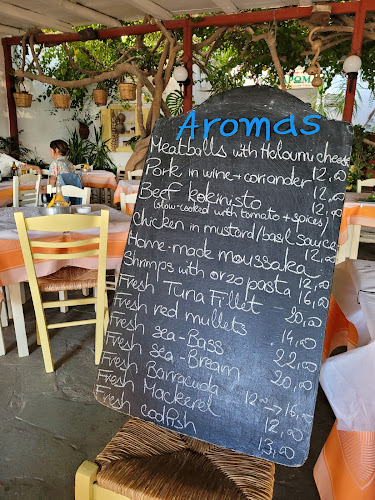 Aromas
Meatballs with Haloumi cheese
12,00
Pork in wine + coriander 12,00
Beef kokinisto 12,00
(slow-cooked with tomato + spices)
Chicken in mustard/basil sauce
12,00
Home-made moussaka 12,00
Shrimps with orzo pasta 16,00
Fresh Tuna Fillet - 20,00
Fresh red mullets 14,00
Fresh sea-Bass 22,00
Fresh sea-Bream 20,00
Fresh Barracuda 12,00 → 16,00
Fresh Mackerel 12,00
Fresh codfish 13,00